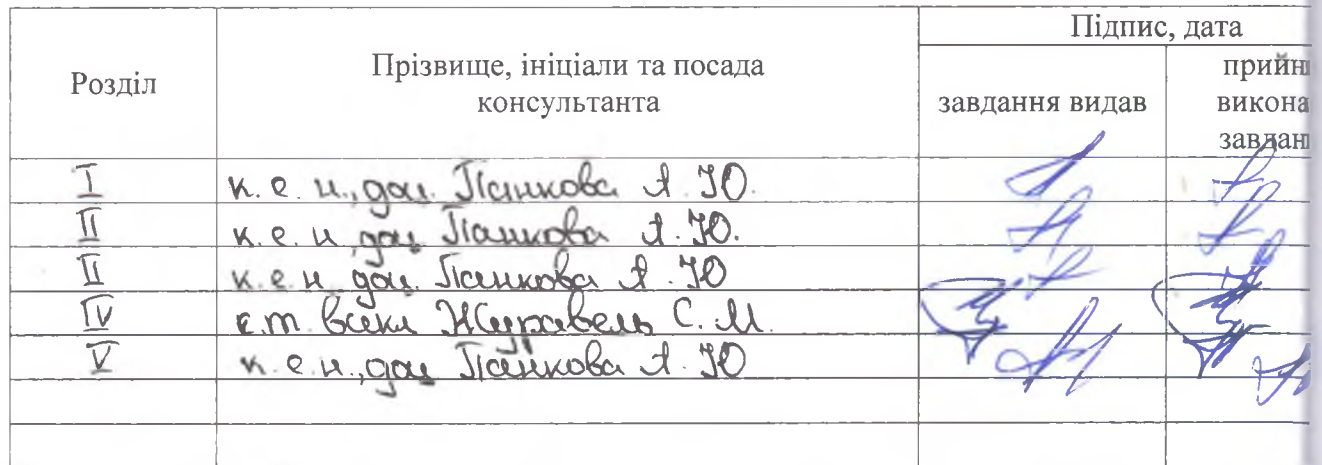 Підпис, дата
Розділ
Прізвище, ініціали та посада
консультанта
завдання видав
прийн
викона
завдан
I к. е. н., доц. Панкова А. Ю.
II к. е. н., доц Панкова А. Ю.
II к. е. н. доц. Панкова А. Ю
IV ст. викл Журавель С. М.
V к. е. н., доц Панкова А. Ю